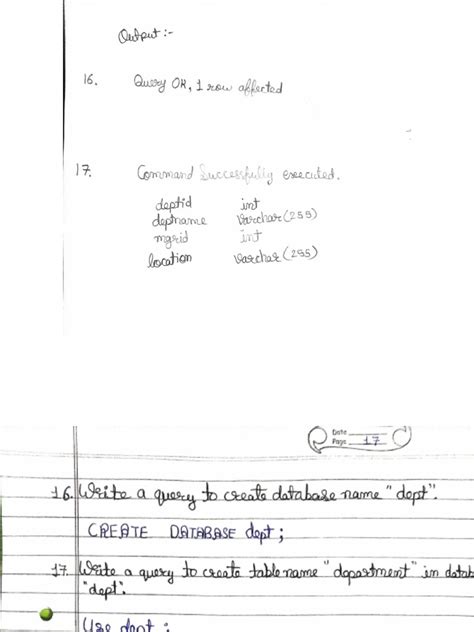 Output :-
16. Query OK, 1 row affected
17. Command Successfully executed.
deptid int
deptname varchar(255)
mgrid int
location varchar(255)
Date
Page 17
16. Write a query to create database name "dept".
CREATE DATABASE dept;
17. Write a query to create table name "department" in datab
"dept".
Use dept;